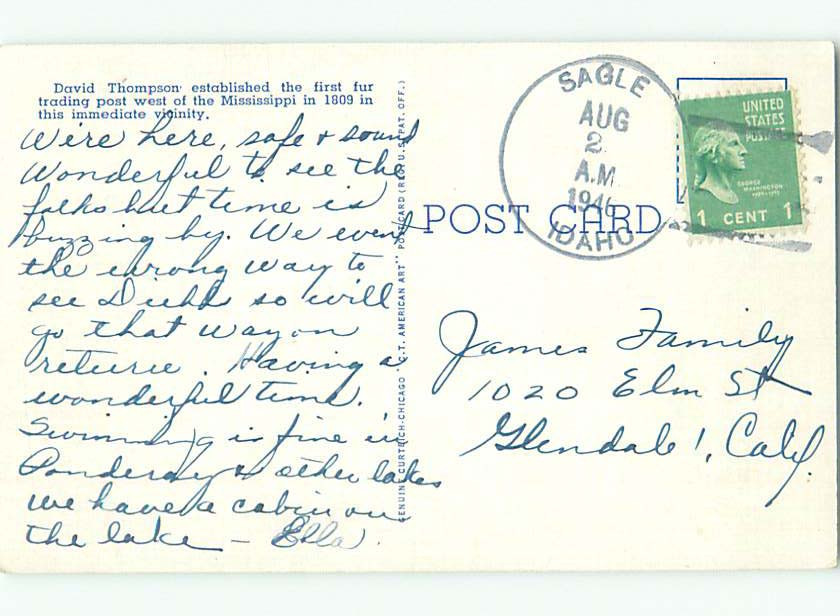 David Thompson established the first fur
trading post west of the Mississippi in 1809 in
this immediate vicinity.
We're here, safe & sound
Wonderful to see the
folks but time is
buzzing by. We went
the wrong way to
see so will
go that way on
return. Having a
wonderful time.
Swimming is fine in
Ponderay & other lakes
we have a cabin on
the lake – Ella.
GENUINE CURTEICH-CHICAGO "C.T. AMERICAN ART" POST CARD (REG. U.S. PAT. OFF.)
POST CARD
SAGLE
AUG
2
A.M.
1946
IDAHO
UNITED
STATES
POSTAGE
GEORGE
WASHINGTON
1 CENT 1
James Family
1020 Elm St
Glendale 1, Calif.